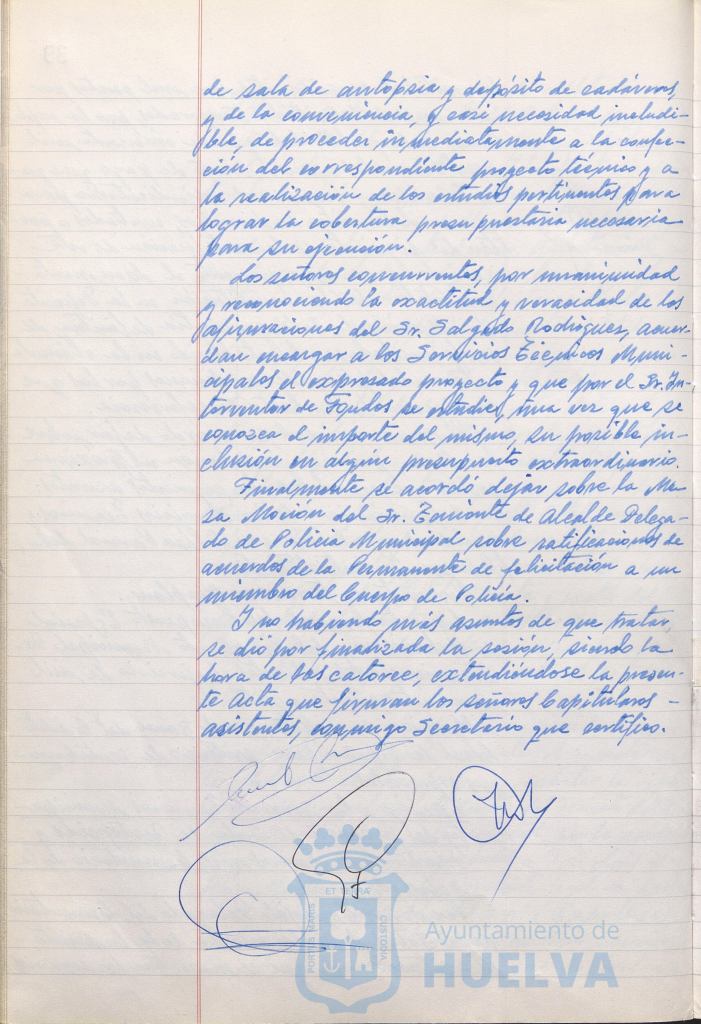 de sala de autopsia y depósito de cadáveres,
y de la conveniencia, y casi necesidad ineludi-
ble, de proceder inmediatamente a la confec-
ción del correspondiente proyecto técnico y a
la realización de los estudios pertinentes para
lograr la cobertura presupuestaria necesaria
para su ejecución.
Los señores concurrentes, por unanimidad
y reconociendo la exactitud y veracidad de las
afirmaciones del Sr. Salgado Rodríguez, acuer-
dan encargar a los Servicios Técnicos Muni-
cipales el expresado proyecto y que por el Sr. In-
terventor de Fondos se estudie, una vez que se
conozca el importe del mismo, su posible in-
clusión en algún presupuesto extraordinario.
Finalmente se acordó dejar sobre la Me-
sa Moción del Sr. Teniente de Alcalde Delega-
do de Policía Municipal sobre ratificaciones de
acuerdos de la Permanente de felicitación a un
miembro del Cuerpo de Policía.
Y no habiendo más asuntos de que tratar,
se dió por finalizada la sesión, siendo la
hora de las catorce, extendiéndose la presen-
te Acta que firman los señores Capitulares
asistentes, conmigo Secretario que certifico.
ET TERRA
PORTUS MARIS
CUSTODIA
Ayuntamiento de
HUELVA